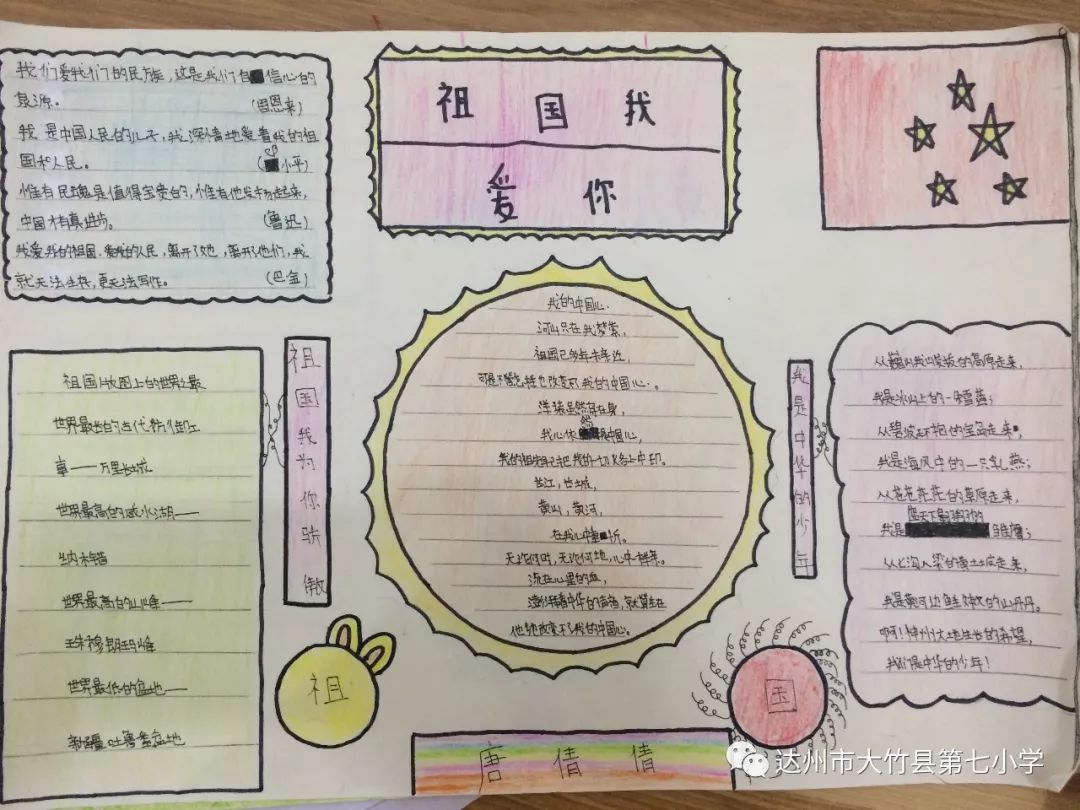 我们爱我们的民族，这是我们自信心的
泉源。
(周恩来)
我是中国人民的儿子，我深情地爱着我的祖
国和人民。
(邓小平)
惟有民魂是值得宝贵的，惟有他发扬起来，
中国才有真进步。
(鲁迅)
我爱我的祖国，爱我的人民，离开了她，离开了他们，我
就无法生存，更无法写作。
(巴金)
祖国我
爱你
祖国版图上的世界之最
世界最长的古代防御工
事——万里长城
世界最高的咸水湖——
纳木错
世界最高的山峰——
珠穆朗玛峰
世界最低的盆地——
新疆吐鲁番盆地
祖国我为你骄傲
我的中国心
河山只在我梦萦，
祖国已多年未亲近，
可是不管怎样也改变不了我的中国心。
洋装虽然穿在身，
我心依然是中国心，
我的祖先早已把我的一切烙上中印。
长江，长城，
黄山，黄河，
在我心中重千斤。
无论何时，无论何地，心中一样亲。
流在心里的血，
澎湃着中华的声音，就算生在
他乡也改变不了我的中国心。
我是中华的少年
从巍峨峻拔的高原走来，
我是冰山上的一朵雪莲；
从碧波环抱的宝岛走来，
我是海风中的一只乳燕；
从苍苍茫茫的草原走来，
我是蓝天下翱翔的雏鹰；
从七沟八梁的黄土坡走来，
我是黄河边鲜嫩的山丹丹。
啊！神州大地生长的希望，
我们是中华的少年！
祖
国
唐倩倩
达州市大竹县第七小学